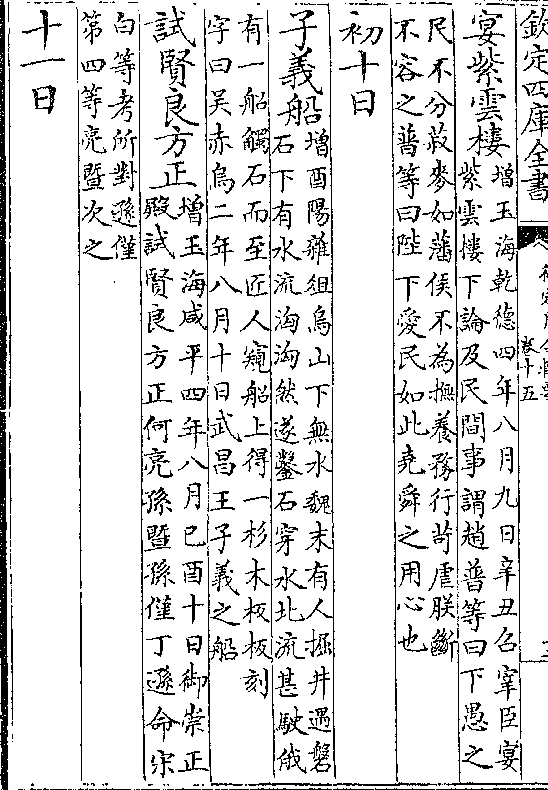 欽定四庫全書
卷十五
宴紫雲樓增玉海乾德四年八月九日辛丑召宰臣宴
紫雲樓下論及民間事謂趙普等曰下愚之
民不分菽麥如藩侯不為撫養務行苛虐朕斷
不容之普等曰陛下愛民如此堯舜之用心也
初十日
子義船增酉陽雜俎烏山下無水魏末有人掘井遇磐
石下有水流洶洶然遂鑿石穿水北流甚駛俄
有一船觸石而至匠人窺船上得一杉木板板刻
字曰吳赤烏二年八月十日武昌王子義之船
試賢良方正增玉海咸平四年八月己酉十日御崇正
殿試賢良方正何亮孫暨孫僅丁遜命宋
白等考所對遜僅
第四等亮暨次之
十一日